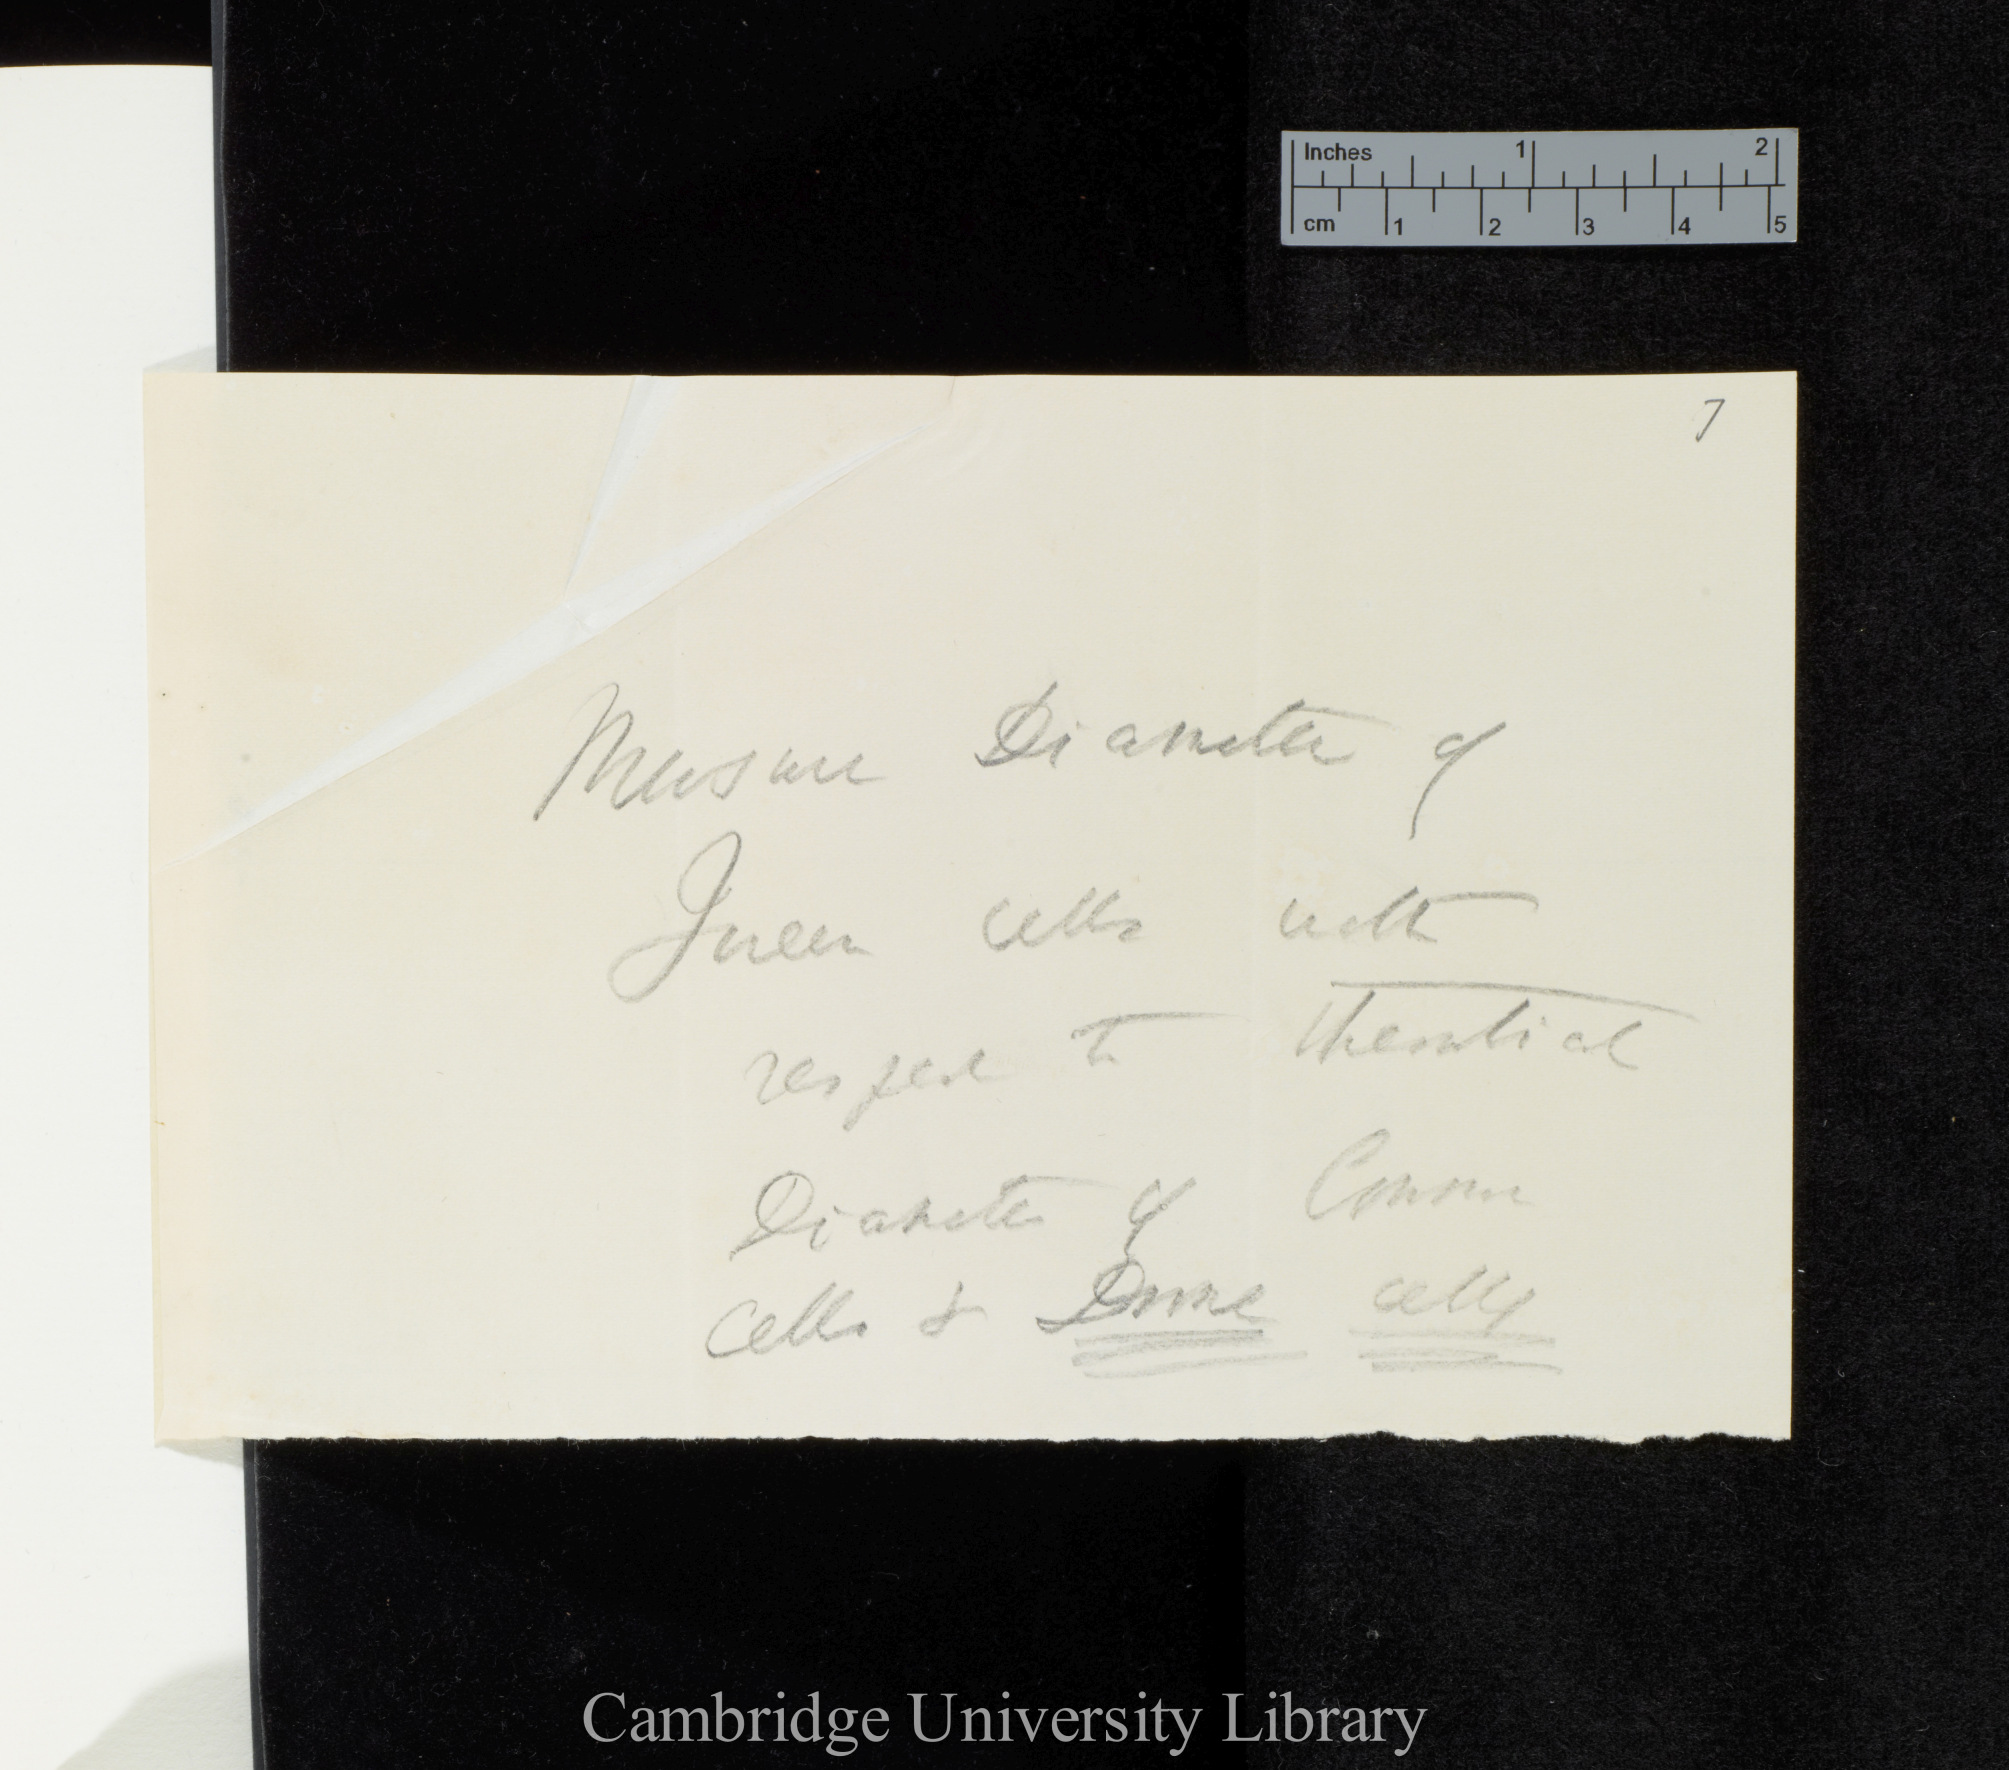 Inches 1 2
cm 1 2 3 4 5
7
Measure Diameter of
Queen cells with
respect to theoretical
Diameter of Common
cells & Drone cells
Cambridge University Library